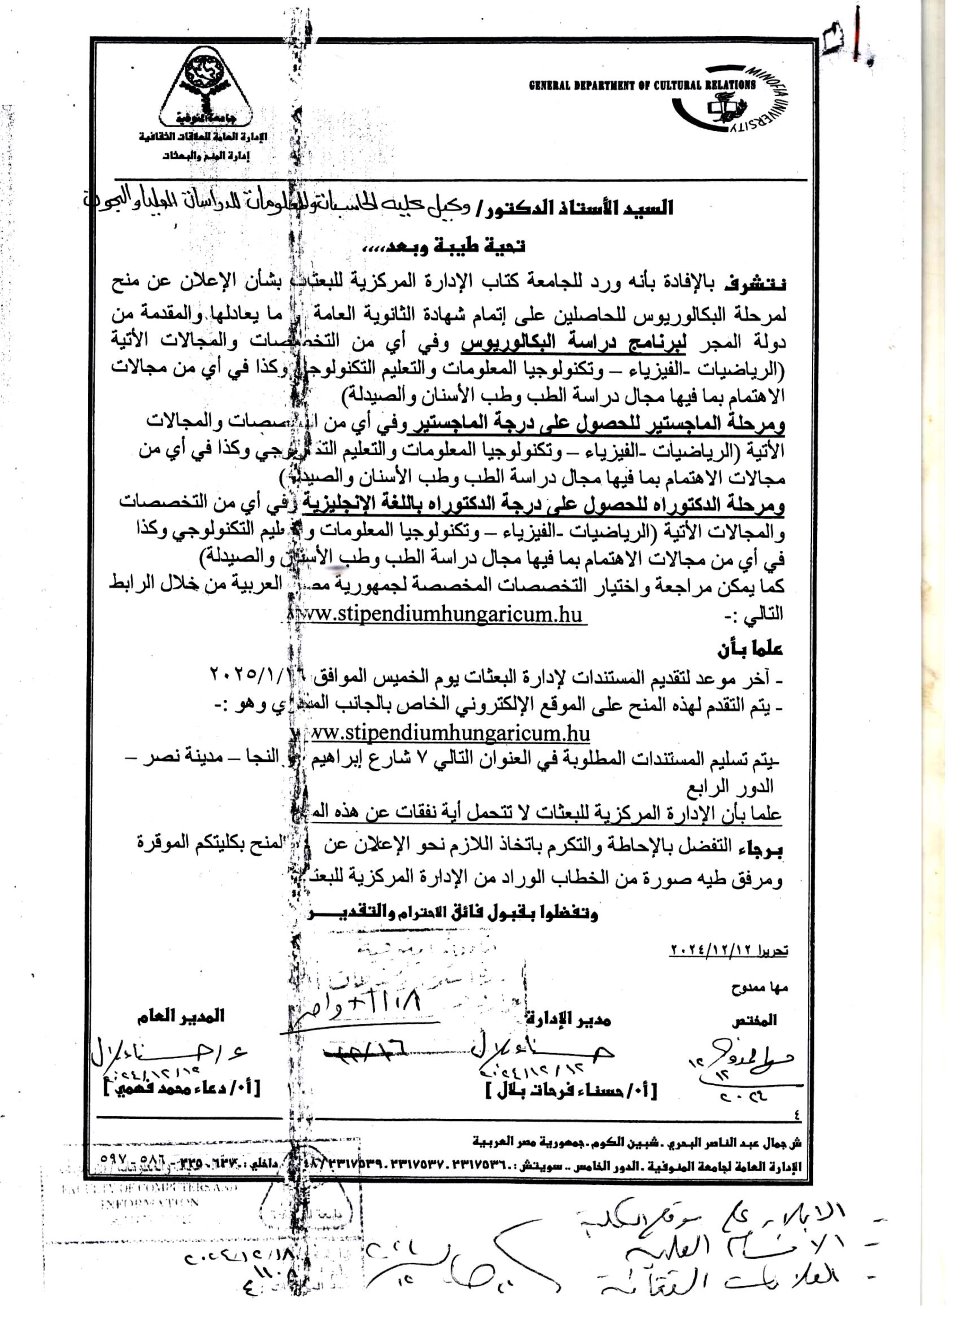 GENERAL DEPARTMENT OF CULTURAL RELATIONS
MINOFIA UNIVERSITY
جامعة المنوفية
الإدارة العامة للعلاقات الثقافية
إدارة المنح والبعثات
السيد الأستاذ الدكتور/ وكيل كلية الحاسبات والمعلومات للدراسات العليا والبحوث
تحية طيبة وبعد،،،،
نتشرف بالإفادة بأنه ورد للجامعة كتاب الإدارة المركزية للبعثات بشأن الإعلان عن منح
لمرحلة البكالوريوس للحاصلين على إتمام شهادة الثانوية العامة ما يعادلها والمقدمة من
دولة المجر لبرنامج دراسة البكالوريوس وفي أي من التخصصات والمجالات الأتية
(الرياضيات -الفيزياء – وتكنولوجيا المعلومات والتعليم التكنولوجي وكذا في أي من مجالات
الاهتمام بما فيها مجال دراسة الطب وطب الأسنان والصيدلة)
ومرحلة الماجستير للحصول على درجة الماجستير وفي أي من التخصصات والمجالات
الأتية (الرياضيات -الفيزياء – وتكنولوجيا المعلومات والتعليم التكنولوجي وكذا في أي من
مجالات الاهتمام بما فيها مجال دراسة الطب وطب الأسنان والصيدلة)
ومرحلة الدكتوراه للحصول على درجة الدكتوراه باللغة الإنجليزية وفي أي من التخصصات
والمجالات الأتية (الرياضيات -الفيزياء – وتكنولوجيا المعلومات والتعليم التكنولوجي وكذا
في أي من مجالات الاهتمام بما فيها مجال دراسة الطب وطب الأسنان والصيدلة)
كما يمكن مراجعة واختيار التخصصات المخصصة لجمهورية مصر العربية من خلال الرابط
التالي :- www.stipendiumhungaricum.hu
علما بأن
- آخر موعد لتقديم المستندات لإدارة البعثات يوم الخميس الموافق ٢٠٢٥/١/١٦
- يتم التقدم لهذه المنح على الموقع الإلكتروني الخاص بالجانب المجري وهو :-
www.stipendiumhungaricum.hu
-يتم تسليم المستندات المطلوبة في العنوان التالي ٧ شارع إبراهيم أبو النجا – مدينة نصر –
الدور الرابع
علما بأن الإدارة المركزية للبعثات لا تتحمل أية نفقات عن هذه المنح
برجاء التفضل بالإحاطة والتكرم باتخاذ اللازم نحو الإعلان عن المنح بكليتكم الموقرة
ومرفق طيه صورة من الخطاب الوراد من الإدارة المركزية للبعثات
وتفضلوا بقبول فائق الاحترام والتقدير
تحريرا ٢٠٢٤/١٢/١٢
مها ممدوح
المختص
مدير الإدارة
المدير العام
٢٠٢٤/١٢/١٢
[أ٠/ حسناء فرحات بلال]
[أ٠/ دعاء محمد فهمي]
٤
ش جمال عبد الناصر البحري ـ شبين الكوم ـ جمهورية مصر العربية
الإدارة العامة لجامعة المنوفية ـ الدور الخامس
FACULTY OF COMPUTERS AND
INFORMATION
- الإعلان على موقع الكلية
- الأقسام العلمية
- العلاقات الثقافية
٢٠٢٤/١٢/١٨